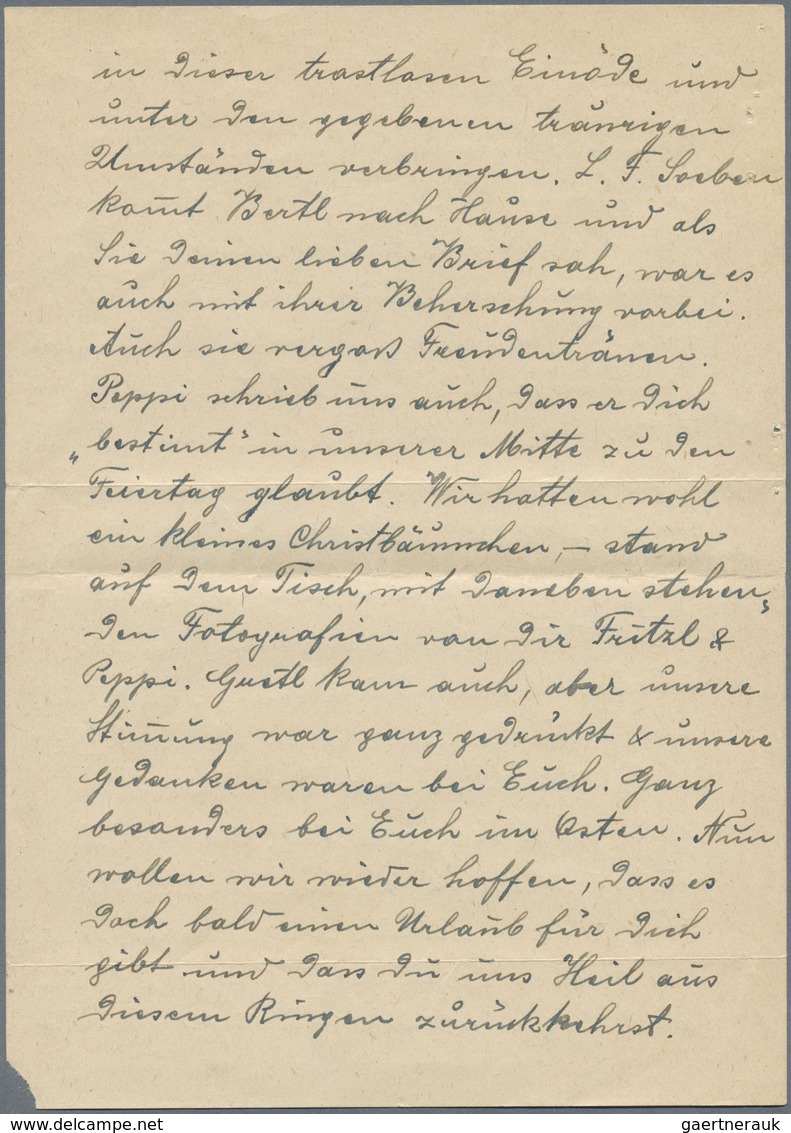 in dieser trostlosen Einöde und
unter den gegebenen traurigen
Umständen verbringen. L. F. Soeben
kom̅t Bertl nach Hause und als
Sie Deinen lieben Brief sah, war es
auch mit ihrer Beherschung vorbei.
Auch sie vergoß Freudentränen.
Peppi schrieb uns auch, dass er Dich
„bestim̅t" in unserer Mitte zu den
Feiertag glaubt. Wir hatten wohl
ein kleines Christbäumchen, – stand
auf dem Tisch, mit daneben stehen„
den Fotografien von Dir Fritzl &
Peppi. Gretl kam auch, aber unsere
Stim̅ung war ganz gedrückt & unsere
Gedanken waren bei Euch. Ganz
besonders bei Euch im Osten. Nun
wollen wir wieder hoffen, dass es
doch bald einen Urlaub für Dich
gibt und dass Du uns Heil aus
diesem Ringen zurückkehrst.
gaertnerauk
delcampe.net